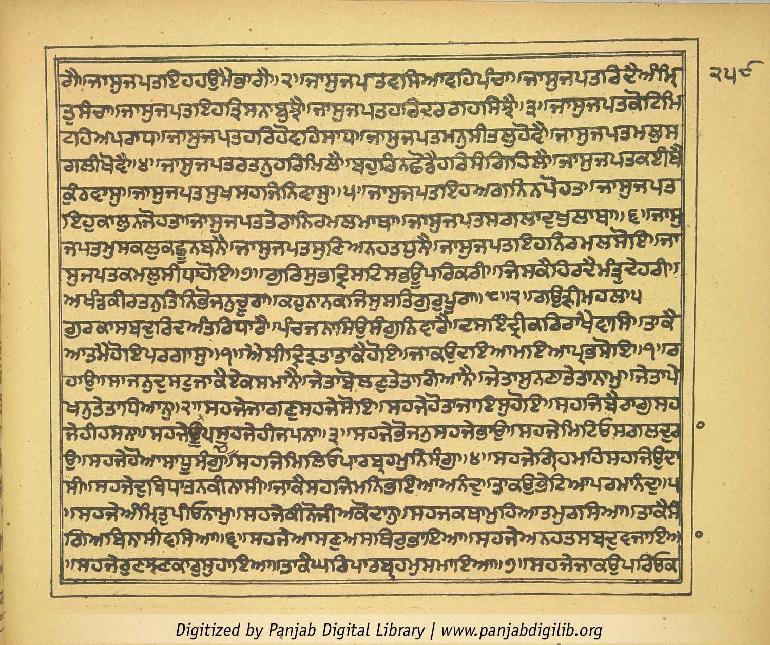 ਗੈ॥ਜਾਸੁਜਪਤਇਹਹਉਮੈਭਾਗੈ॥੨॥ਜਾਸੁਜਪਤਵਸਿਆਵਹਿਪੰਚਾ॥ਜਾਸੁਜਪਤਰਿਦੈਅੰਮ੍ਰਿ
ਤੁਸੰਚਾ॥ਜਾਸੁਜਪਤਇਹਤ੍ਰਿਸਨਾਬੁਝੈ॥ਜਾਸੁਜਪਤਹਰਿਦਰਗਹਸਿਝੈ॥੩॥ਜਾਸੁਜਪਤਕੋਟਿਮਿ
ਟਹਿਅਪਰਾਧ॥ਜਾਸੁਜਪਤਹਰਿਹੋਵਹਿਸਾਧ॥ਜਾਸੁਜਪਤਮਨੁਸੀਤਲੁਹੋਵੈ॥ਜਾਸੁਜਪਤਮਲੁਸ
ਗਲੀਖੋਵੈ॥੪॥ਜਾਸੁਜਪਤਰਤਨੁਹਰਿਮਿਲੈ॥ਬਹੁਰਿਨਛੋਡੈਹਰਿਸੰਗਿਹਿਲੈ॥ਜਾਸੁਜਪਤਕਈਬੈ
ਕੁੰਠਵਾਸੁ॥ਜਾਸੁਜਪਤਸੁਖਸਹਜਿਨਿਵਾਸੁ॥੫॥ਜਾਸੁਜਪਤਇਹਅਗਨਿਨਪੋਹਤ॥ਜਾਸੁਜਪਤ
ਇਹੁਕਾਲੁਨਜੋਹਤ॥ਜਾਸੁਜਪਤਤੇਰਾਨਿਰਮਲਮਾਥਾ॥ਜਾਸੁਜਪਤਸਗਲਾਦੁਖੁਲਾਥਾ॥੬॥ਜਾਸੁ
ਜਪਤਮੁਸਕਲੁਕਛੂਨਬਨੈ॥ਜਾਸੁਜਪਤਸੁਣਿਅਨਹਤਧੁਨੈ॥ਜਾਸੁਜਪਤਇਹਨਿਰਮਲਸੋਇ॥ਜਾ
ਸੁਜਪਤਕਮਲੁਸੀਧਾਹੋਇ॥੭॥ਗੁਰਿਸੁਭਦ੍ਰਿਸਟਿਸਭਊਪਰਿਕਰੀ॥ਜਿਸਕੈਹਿਰਦੈਮੰਤ੍ਰੁਦੇਹਰੀ॥
ਅਖੰਡਕੀਰਤਨੁਤਿਨਿਭੋਜਨੁਚੂਰਾ॥ਕਹੁਨਾਨਕਜਿਸੁਸਤਿਗੁਰੁਪੂਰਾ॥੮॥੨॥ਗਉੜੀਮਹਲਾ੫
ਗੁਰਕਾਸਬਦੁਰਿਦਅੰਤਰਿਧਾਰੈ॥ਪੰਚਜਨਾਸਿਉਸੰਗੁਨਿਵਾਰੈ॥ਦਸਇੰਦ੍ਰੀਕਰਿਰਾਖੈਵਾਸਿ॥ਤਾਕੈ
ਆਤਮੈਹੋਇਪਰਗਾਸੁ॥੧॥ਐਸੀਦ੍ਰਿੜਤਾਤਾਕੈਹੋਇ॥ਜਾਕਉਦਇਆਮਇਆਪ੍ਰਭਸੋਇ॥੧॥ਰ
ਹਾਉ॥ਸਾਜਨੁਦੁਸਟੁਜਾਕੈਏਕਸਮਾਨੈ॥ਜੇਤਾਬੋਲਣੁਤੇਤਾਗਿਆਨੈ॥ਜੇਤਾਸੁਨਣਾਤੇਤਾਨਾਮੁ॥ਜੇਤਾਪੇ
ਖਨੁਤੇਤਾਧਿਆਨੁ॥੨॥ਸਹਜੇਜਾਗਣੁਸਹਜੇਸੋਇ॥ਸਹਜੇਹੋਤਾਜਾਇਸੁਹੋਇ॥ਸਹਜਿਬੈਰਾਗੁਸਹ
ਜੇਹੀਹਸਨਾ॥ਸਹਜੇਚੂਪਸਹਜੇਹੀਜਪਨਾ॥੩॥ਸਹਜੇਭੋਜਨੁਸਹਜੇਭਾਉ॥ਸਹਜੇਮਿਟਿਓਸਗਲਦੁਰਾ
ਉ॥ਸਹਜੇਹੋਆਸਾਧੂਸੰਗੁ॥ਸਹਜਿਮਿਲਿਓਪਾਰਬ੍ਰਹਮੁਨਿਸੰਗੁ॥੪॥ਸਹਜੇਗ੍ਰਿਹਮਹਿਸਹਜਿਉਦਾ
ਸੀ॥ਸਹਜੇਦੁਬਿਧਾਤਨਕੀਨਾਸੀ॥ਜਾਕੈਸਹਜਿਮਨਿਭਇਆਅਨੰਦੁ॥ਤਾਕਉਭੇਟਿਆਪਰਮਾਨੰਦੁ॥੫
॥ਸਹਜੇਅੰਮ੍ਰਿਤੁਪੀਓਨਾਮੁ॥ਸਹਜੇਕੀਨੋਜੀਅਕੋਦਾਨੁ॥ਸਹਜਕਥਾਮਹਿਆਤਮੁਰਸਿਆ॥ਤਾਕੈਸੰ
ਗਿਅਬਿਨਾਸੀਵਸਿਆ॥੬॥ਸਹਜੇਆਸਣੁਅਸਥਿਰੁਭਾਇਆ॥ਸਹਜੇਅਨਹਤਸਬਦੁਵਜਾਇਆ
॥ਸਹਜੇਰੁਣਝੁਣਕਾਰੁਸੁਹਾਇਆ॥ਤਾਕੈਘਰਿਪਾਰਬ੍ਰਹਮੁਸਮਾਇਆ॥੭॥ਸਹਜੇਜਾਕਉਪਰਿਓਕ
੨੫੯
Digitized by Panjab Digital Library | www.panjabdigilib.org